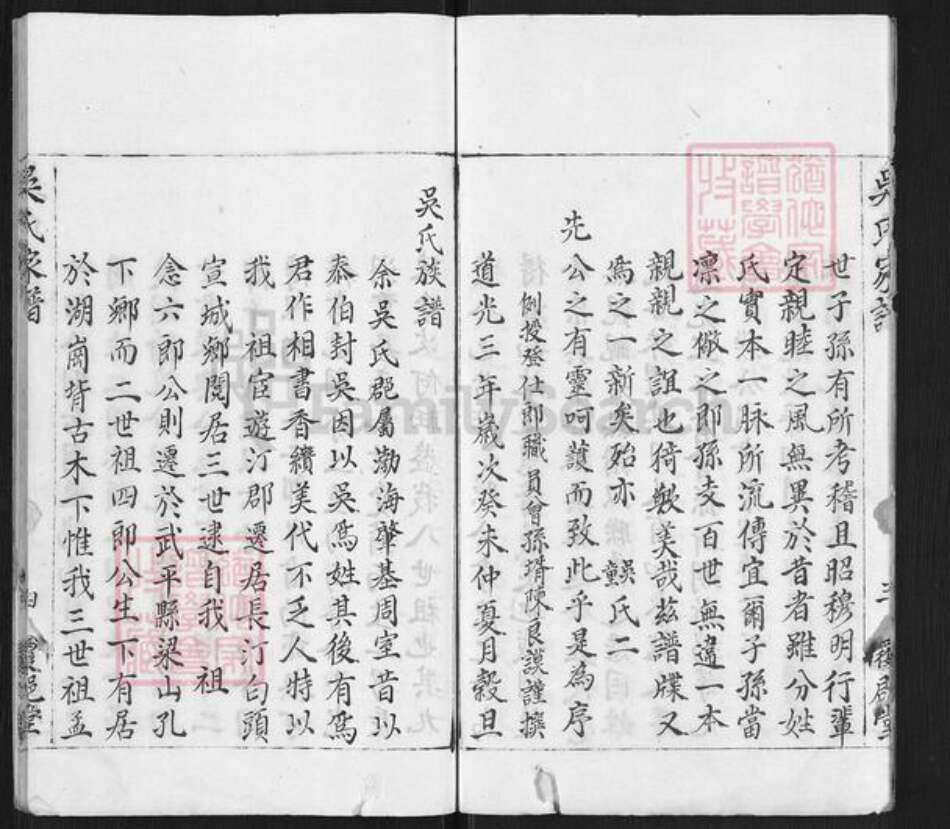 世子孫有所考稽且昭穆明行輩
定親睦之風無異於昔者雖分姓
氏實本一脉所流傳宜爾子孫當
凛之儆之即孫支百世無違一本
親親之誼也猗歟美哉兹譜牒又
為之一新矣殆亦 吳氏二
先
公之有靈呵護而致此乎是為序
例授登仕郎職員曾孫壻陳良謨謹撰
道光三年歲次癸未仲夏月穀旦
吳氏族譜
余吳氏郡屬渤海肇基周室昔以
泰伯封吳因以吳爲姓其後有爲
君作相書香纘美代不乏人特以
我 祖宦遊汀郡遷居長汀白頭
宣城鄉閱居三世逮自我 祖
念六郎公則遷於武平縣梁山孔
下鄉而二世祖四郎公生下有居
於湖崗背古木下惟我三世祖孟
吳氏家譜
FamilySearch